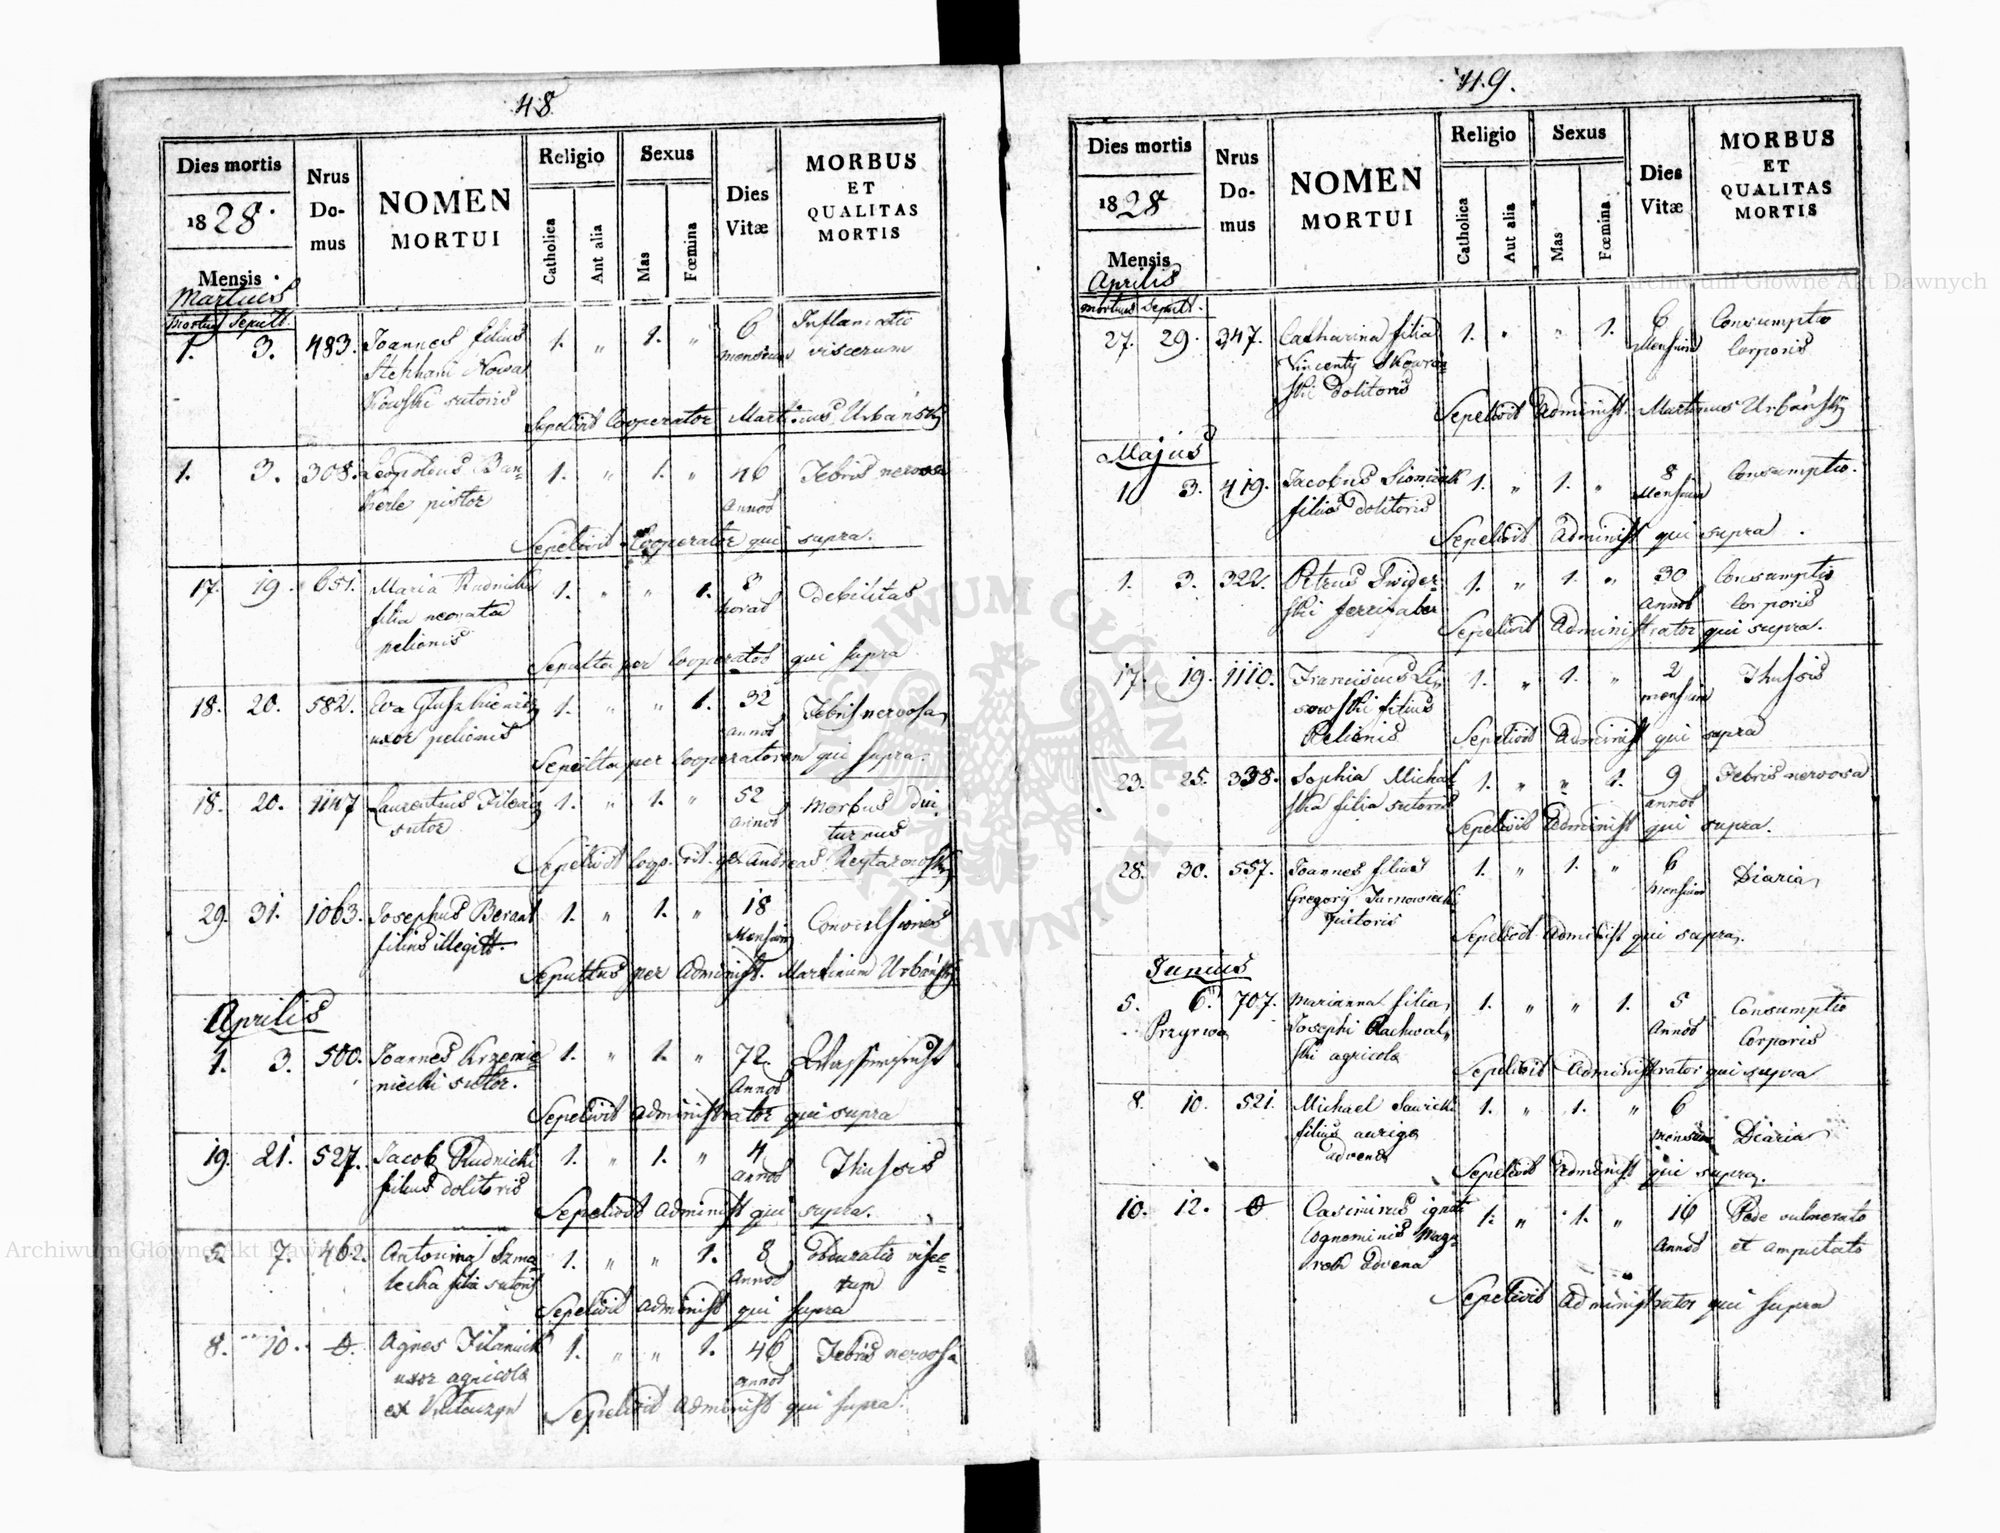 48.
Dies mortis
1828.
Mensis
Nrus Do- mus
NOMEN MORTUI
Religio
Catholica
Aut alia
Sexus
Mas
Fœmina
Dies Vitæ
MORBUS ET QUALITAS MORTIS
Martius
Mortuus Sepult.
1. 3. 483. Joannes filius 1. „ 1. „ 6 Inflamatio
Stephani Nowa mensium viscerum
kowski sutoris
Sepelivit Cooperator Martinus Urbański
1. 3. 308. Leopoldus Ban- 1. „ 1. „ 46 Febris nervosa
kerle pistor Annos
Sepelivit Cooperator qui supra.
17. 19. 651. Maria Rudnicki 1. „ „ 1. 3 Debilitas
filia neonata horas
pelionis
Sepulta per Cooperator qui supra
18. 20. 582. Eva 1. „ „ 1. 32 Febris nervosa
uxor pelionis annos
Sepulta per Cooperatorem qui supra.
18. 20. 1147 Laurentius 1. „ 1. „ 52 Morbus diu
sutor annos turnus
Sepelivit Andreas
29. 31. 1063. Josephus Berant 1. „ 1. „ 18 Convulsiones
filius illegitt. Mensium
Sepultus per Administ. Martinum Urbański
Aprilis
1. 3. 500. Joannes Krzemie 1. „ 1. „ 72. Wassersucht
niecki sutor. Annos
Sepelivit Administrator qui supra
19. 21. 527. Jacob Rudnicki 1. „ 1. „ 4 Thussis
filius dolitoris annos
Sepelivit Administ qui supra.
5. 7. 462. Antonina Szma 1. „ „ 1. 8 Obduratio visce=
lecka filia sutoris Annos rum
Sepelivit Administ qui supra
8. 10. 0. Agnes 1. „ „ 1. 46 Febris nervosa
uxor agricola annos
ex
Sepelivit Administ qui supra.
49.
Dies mortis
1828
Mensis
Nrus Do- mus
NOMEN MORTUI
Religio
Catholica
Aut alia
Sexus
Mas
Fœmina
Dies Vitæ
MORBUS ET QUALITAS MORTIS
Aprilis
mortuus Sepult.
27. 29. 347. Catharina filia 1. „ „ 1. 6 Consumptio
Vincenty Skowroń Mensium Corporis
ski dolitoris
Sepelivit Administ. Martinus Urbański
Majus
1 3. 419. Jacobus 1. „ 1. „ 8 Consumptio.
filius dolitoris Mensium
Sepelivit Administ qui supra.
1. 3. 322. Petrus Swider- 1. „ 1. „ 30 Consumptio
ski ferrifaber Annos Corporis
Sepelivit Administrator qui supra.
17. 19. 1110. Franciscus Li, 1. „ 1. „ 2 Thussis
sowski filius mensium
Pelionis Sepelivit Administ qui supra
23. 25. 338. Sophia Michal 1. „ „ 1. 9 Febris nervosa
ska filia sutoris annos
Sepelivit Administ qui supra.
28. 30. 557. Joannes filius 1. „ 1. „ 6 Diaria
Gregory Tarnowiecki Mensium
Sepelivit Administ qui supra.
Junius
5. 6. 707. Marianna filia 1. „ „ 1. 5 Consumptio
Przyrwa Josephi Rachwal, Annos Corporis
ski agricola
Sepelivit Administrator qui supra
8. 10. 521. Michael Sawicki 1. „ 1. „ 6
filius auriga mensium Diaria
advena
Sepelivit Administ qui supra.
10. 12. 0 Casimirus ignoti 1. „ 1. „ 16 Pede vulnerato
Cognominis Annos et amputato
advena
Sepelivit Administrator qui supra
Archiwum Główne Akt Dawnych
Archiwum Główne Akt Dawnych
ARCHIWUM GŁÓWNE AKT DAWNYCH